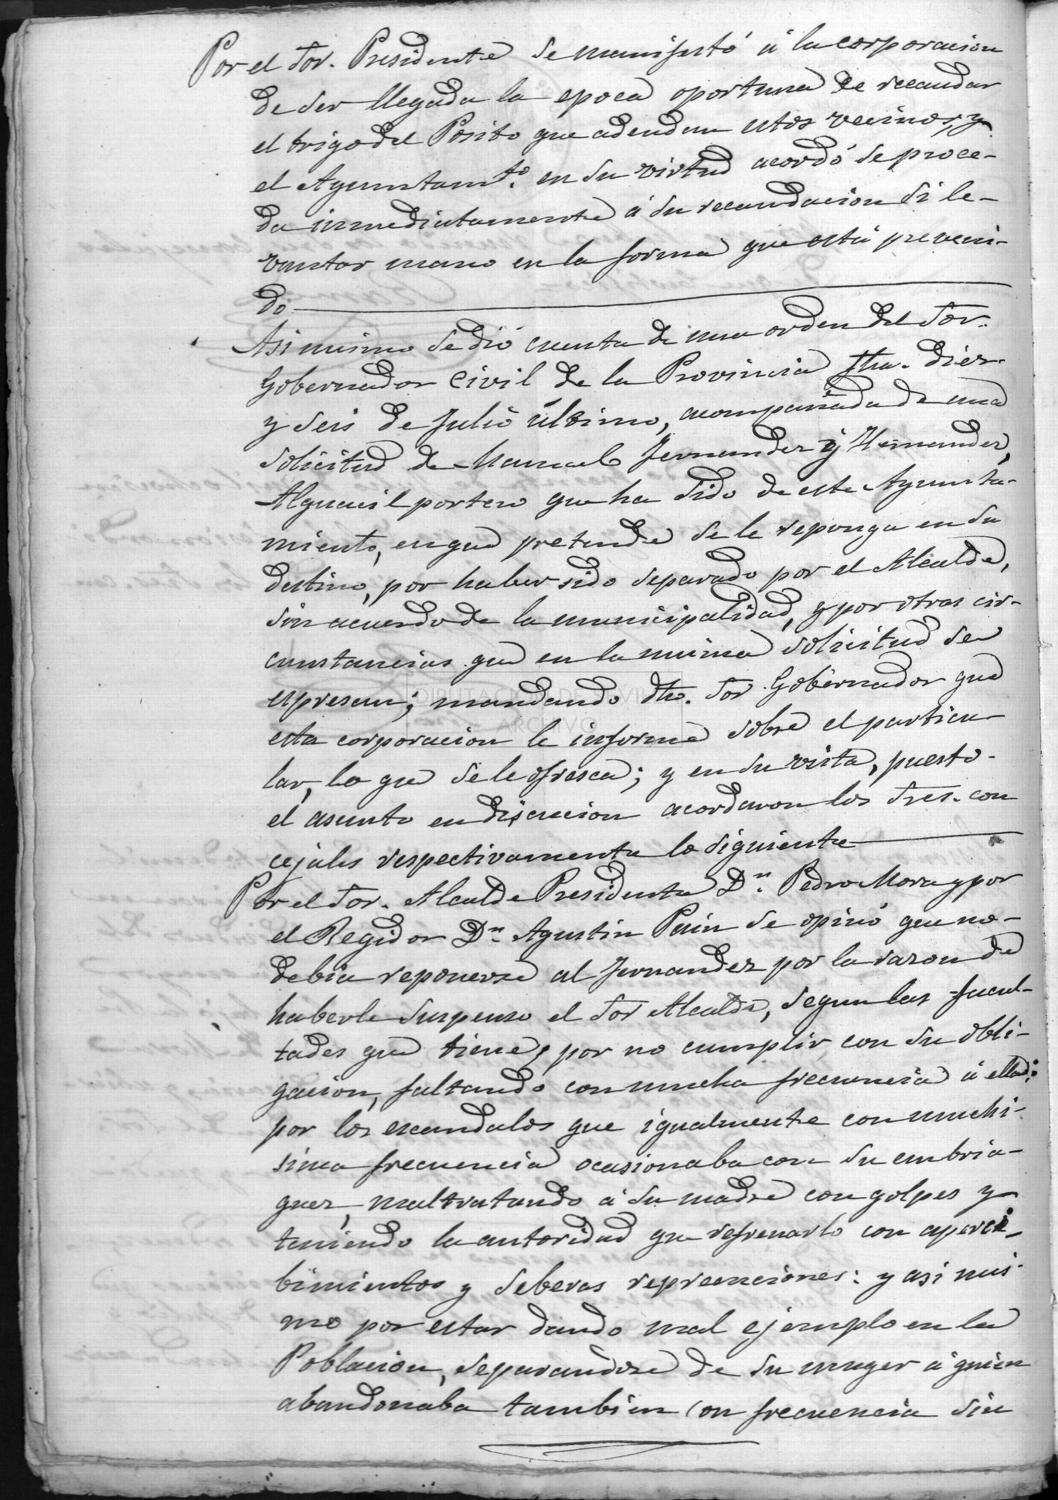 Por el Sor. Presidente se manifestó á la corporacion
de ser llegada la epoca oportuna de recaudar
el trigo del Posito que adeudan estos vecinos, y
el Ayuntamto. en su virtud acordó se proce-
da inmediatamente á su recaudacion si le-
vantar mano en la forma que está preveni-
do
Asi mismo se dió cuenta de una orden del Sor.
Gobernador Civil de la Provincia fha. diez
y seis de Julio ultimo, acompañada de una
solicitud de Manuel Fernandez y Hernandez,
Alguacil portero que ha sido de este Ayunta-
miento, en que pretende se le reponga en su
destino, por haber sido separado por el Alcalde,
sin acuerdo de la municipalidad, y por otras cir-
cunstancias que en la misma solicitud se
espresan; mandando dho. Sor Gobernador que
esta corporacion le informe sobre el particu-
lar, lo que se le ofresca; y en su vista, puesto
el asunto en discucion acordaron los Sres. con
cejales respectivamente lo siguiente
Por el Sor. Alcalde Presidente Dn. Pedro Mora y por
el Regidor Dn. Agustin Pain se opinó que no
debia reponerse al Fernandez por la razon de
haberle suspenso el Sor Alcalde, segun las facul-
tades que tiene, por no cumplir con su obli-
gacion, faltando con mucha frecuencia á ella:
por los escandalos que igualmente con muchi-
sima frecuencia ocasionaba con su embria-
guez, maltratando á su madre con golpes y
teniendo la autoridad que refrenarlo con aperci-
bimientos y seberas reprenciones: y asi mis-
mo por estar dando mal ejemplo en la
Poblacion, separandose de su muger á quien
abandonaba tambien con frecuencia sin
DIPUTACIÓN DE SEVILLA
ARCHIVO